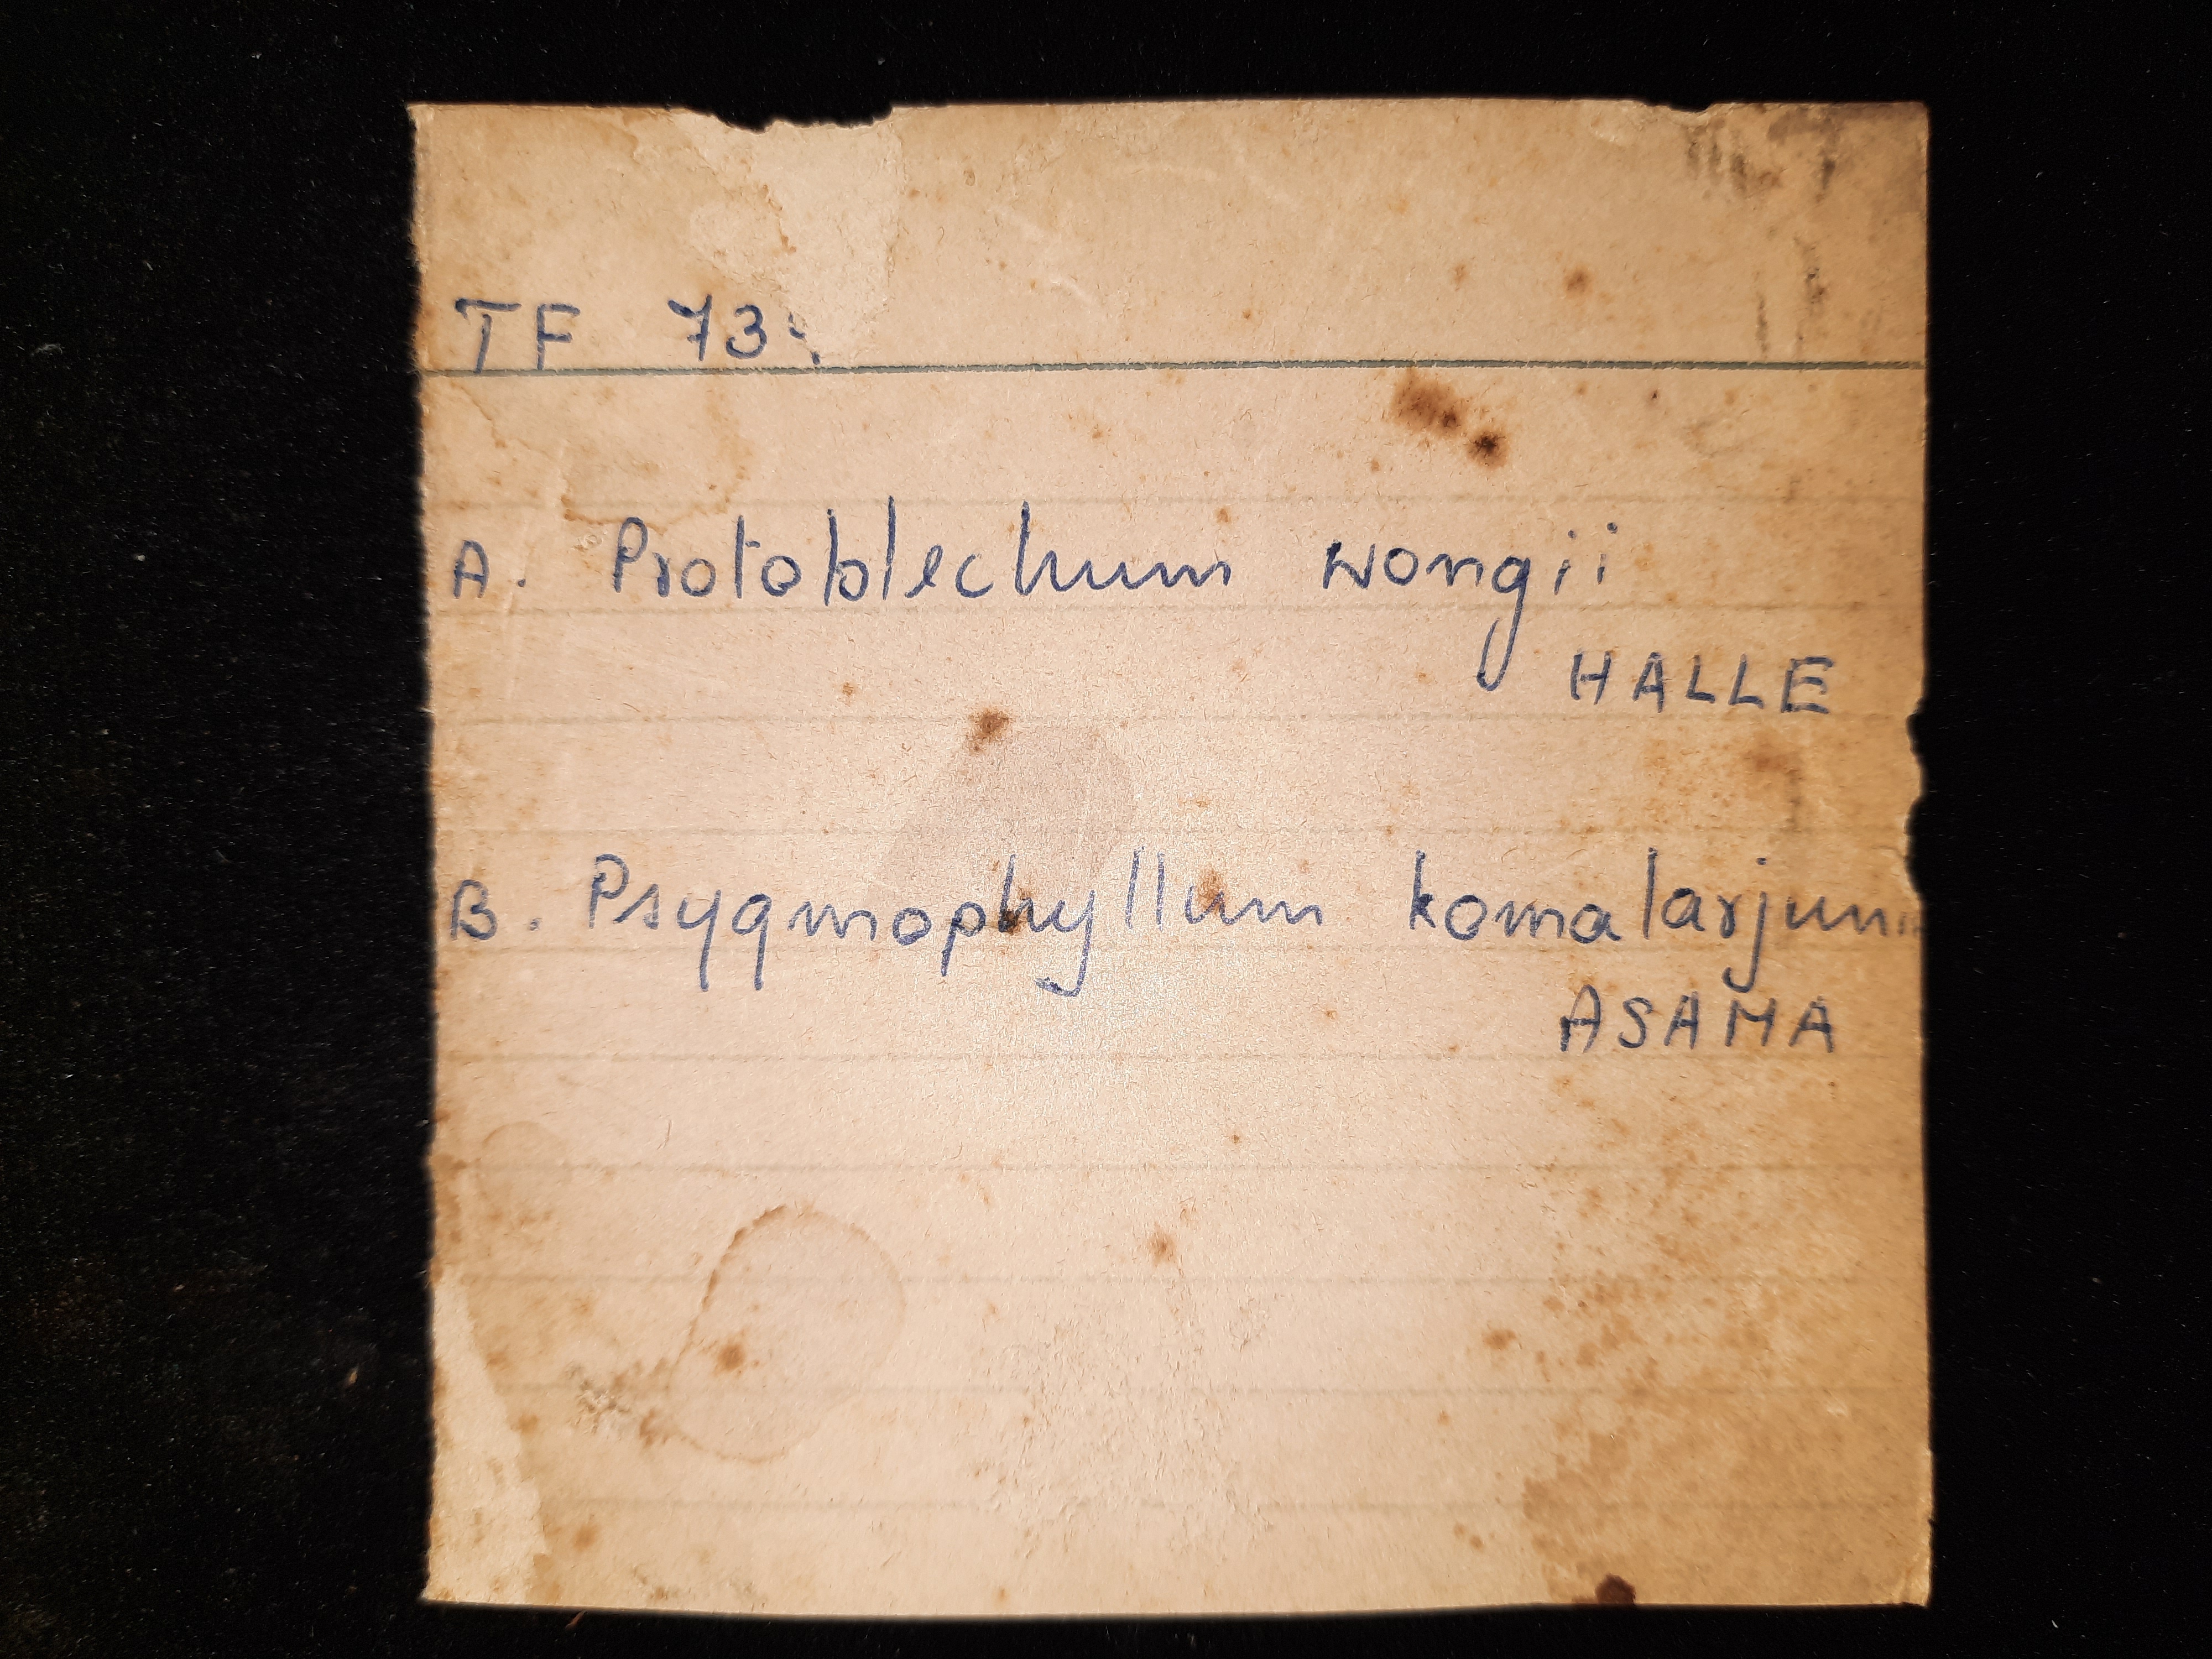 TF 73
A. Protoblechum wongii
HALLE
B. Psygmophyllum komalarjuni
ASAMA